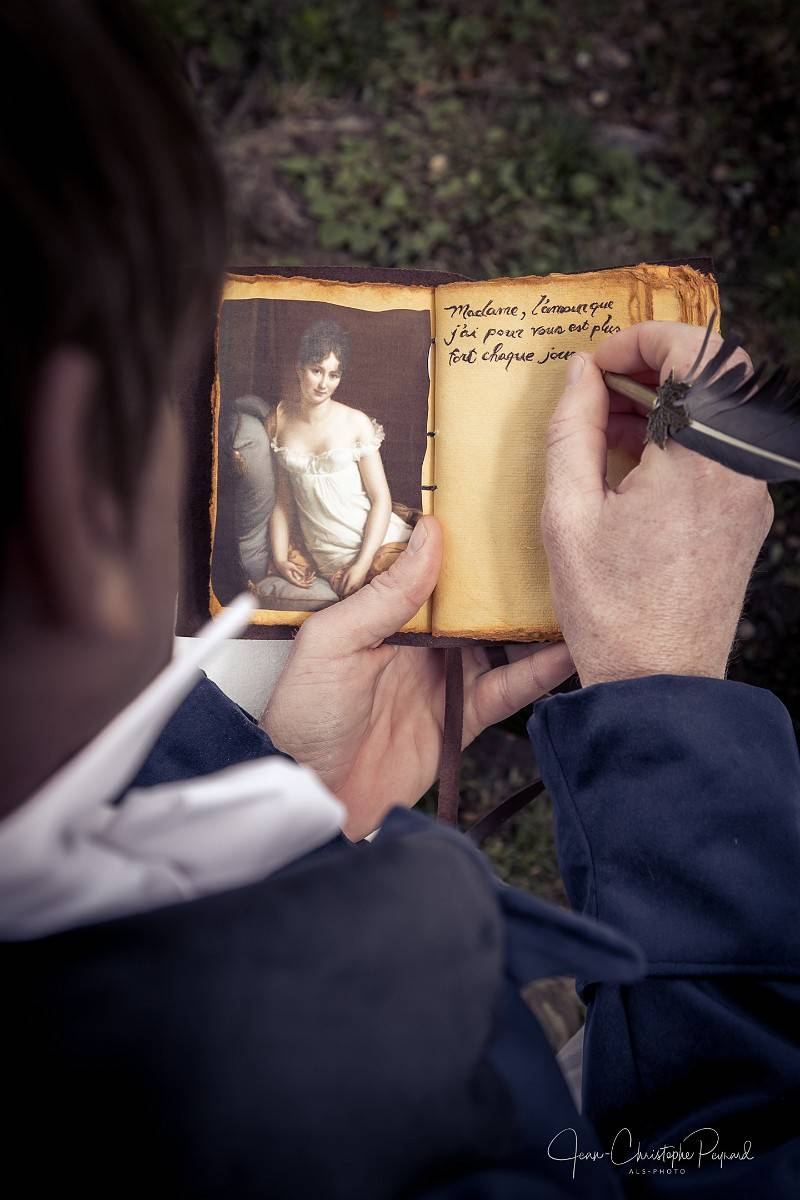 Madame, l'amour que
j'ai pour vous est plus
fort chaque jour
Jean-Christophe Peyrard
ALS-PHOTO